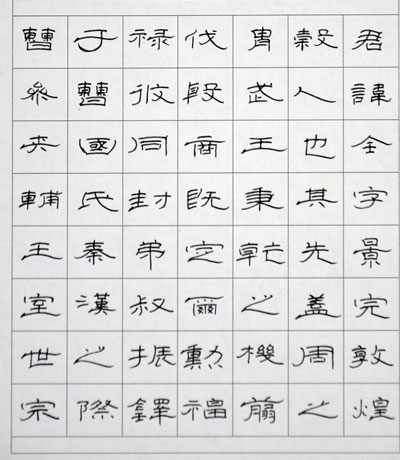 君諱全字景完敦煌
穀人也其先蓋周之
胄武王秉乾之機翦
伐殷商既定爾勳福
禄攸同封弟叔振鐸
于曹國氏秦漢之際
曹參夾輔王室世宗